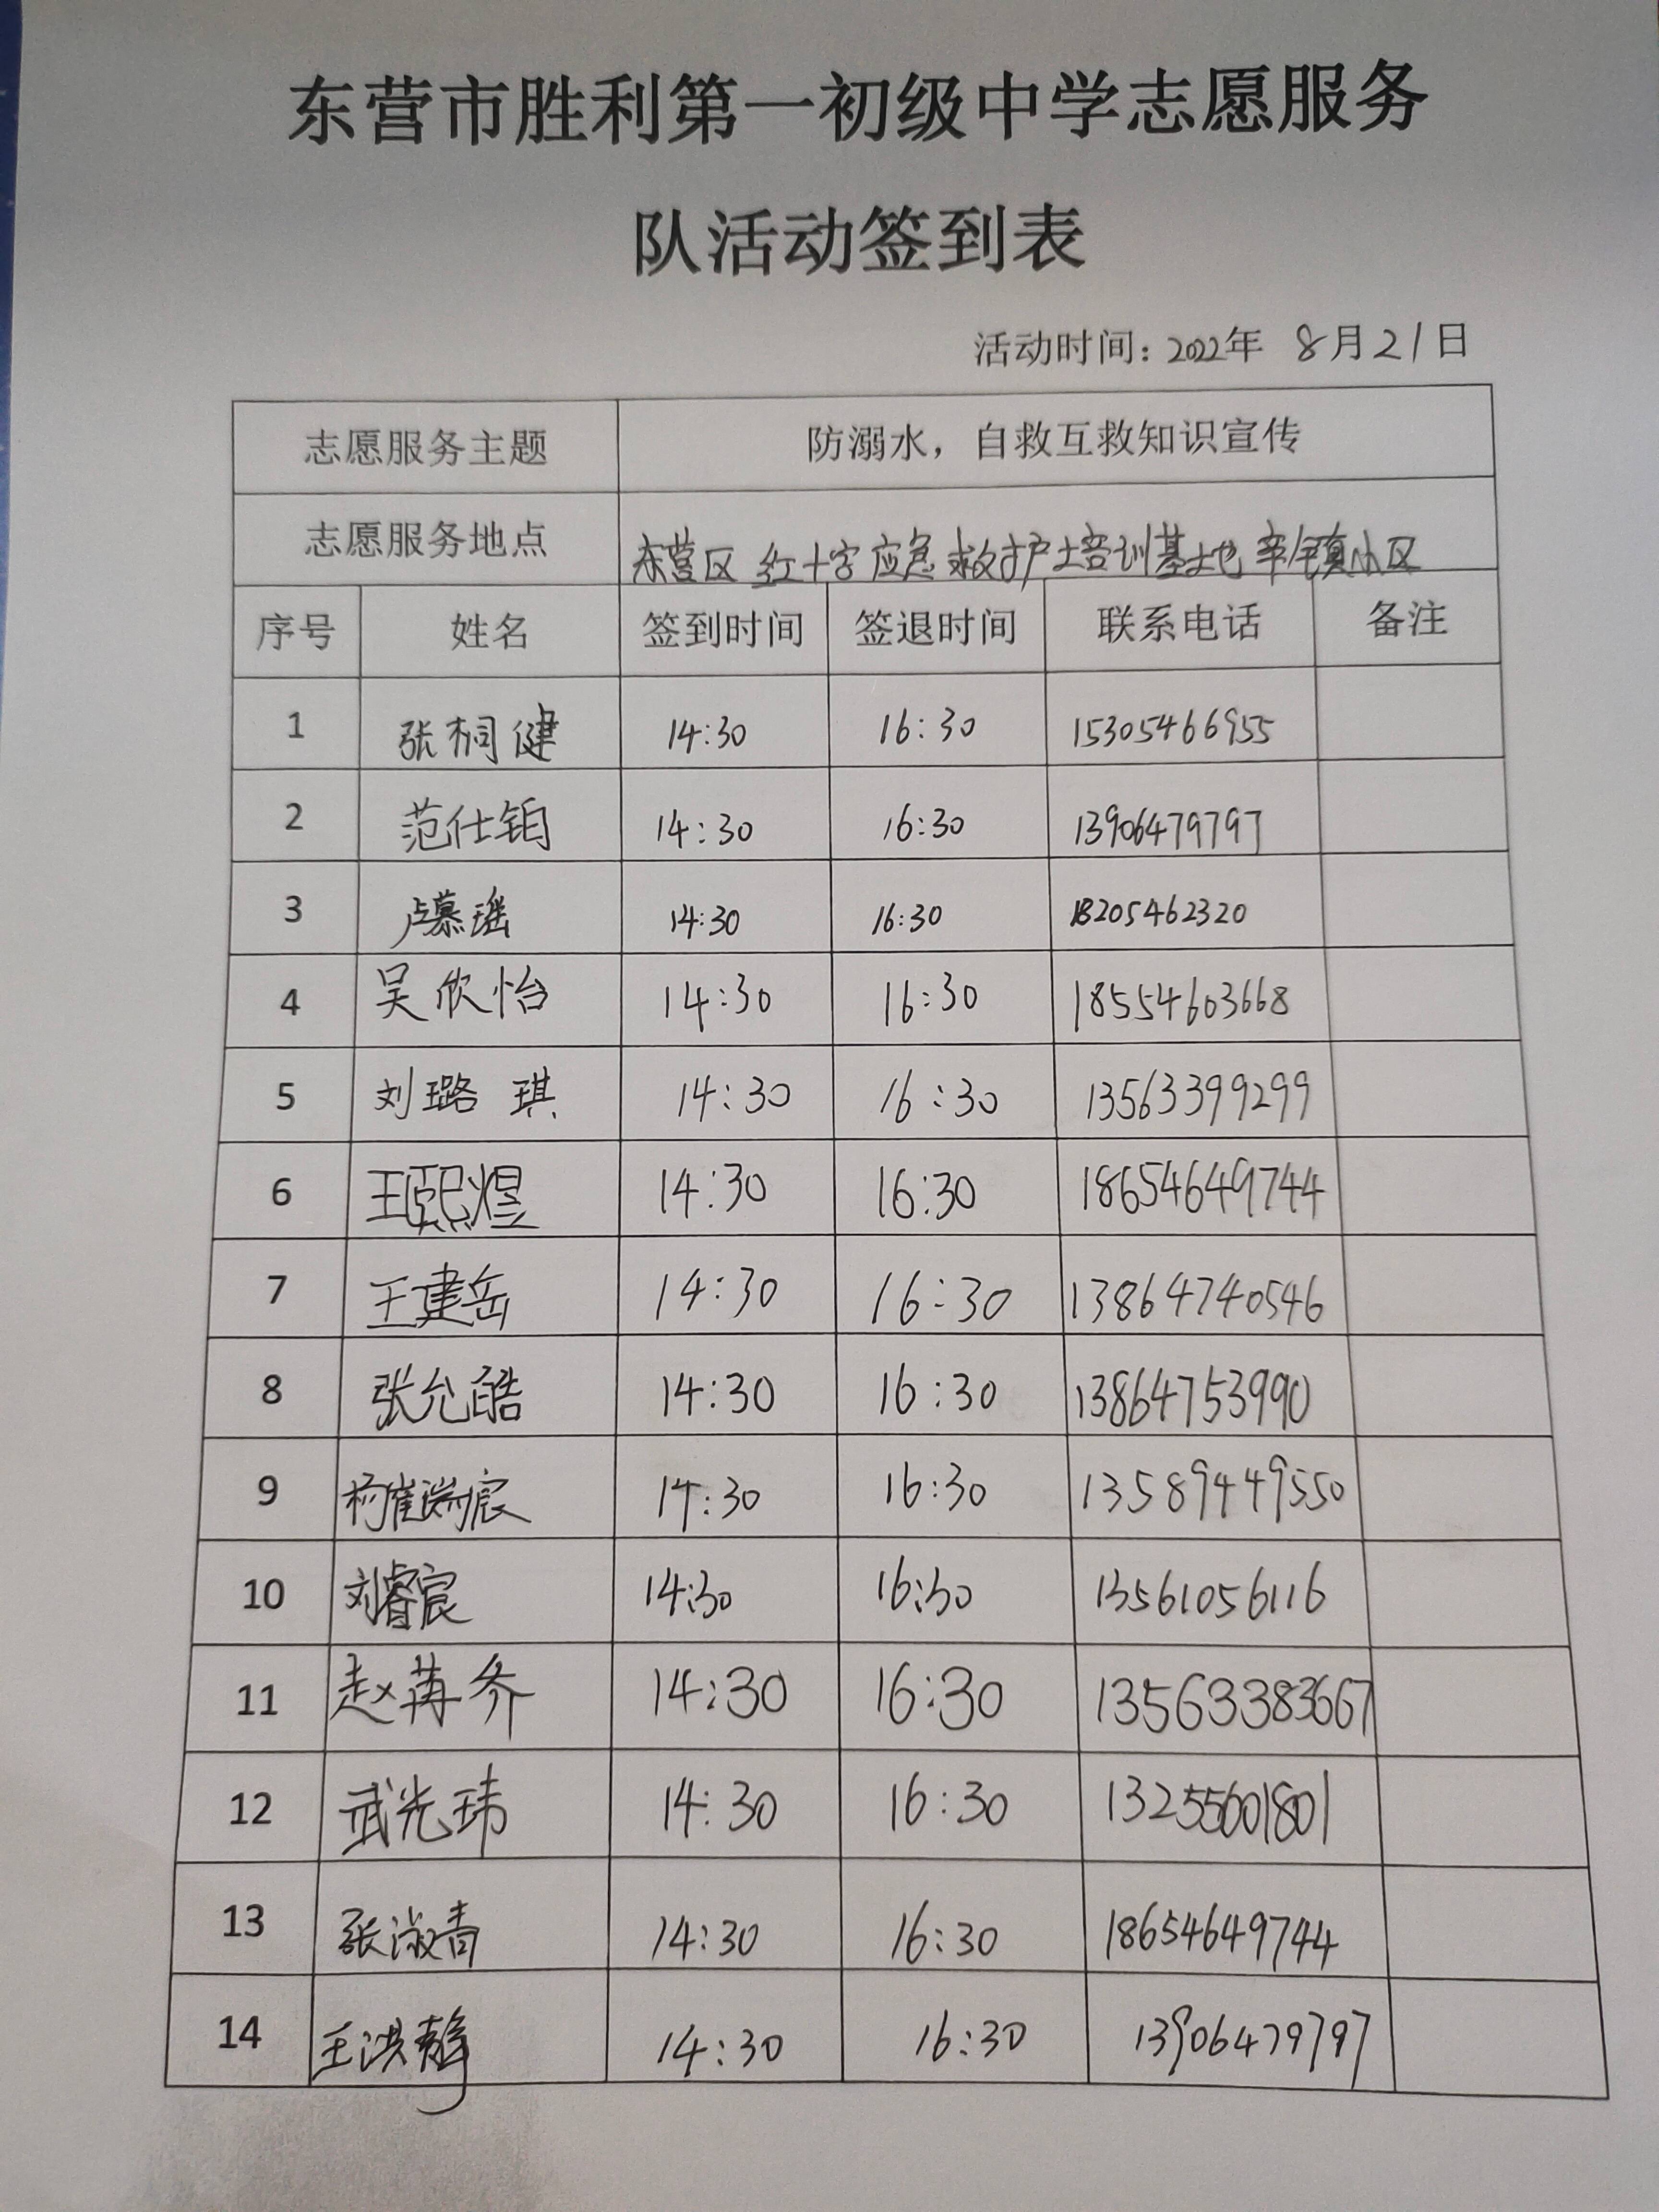 东营市胜利第一初级中学志愿服务
队活动签到表
活动时间：2022年 8月21日
志愿服务主题 防溺水，自救互救知识宣传
志愿服务地点 东营区红十字应急救护培训基地辛镇小区
序号 姓名 签到时间 签退时间 联系电话 备注
1 张桐健 14:30 16:30 15305466955
2 范仕铂 14:30 16:30 13906479797
3 卢慕瑶 14:30 16:30 18205462320
4 吴欣怡 14:30 16:30 18554603668
5 刘璐琪 14:30 16:30 13563399299
6 王熙煜 14:30 16:30 18654649744
7 王建岳 14:30 16:30 13864740546
8 张允皓 14:30 16:30 13864753990
9 杨崔瑞宸 14:30 16:30 13589449550
10 刘睿宸 14:30 16:30 13561056116
11 赵苒乔 14:30 16:30 13563383667
12 武光玮 14:30 16:30 13255601801
13 张淑青 14:30 16:30 18654649744
14 王洪静 14:30 16:30 13906479797